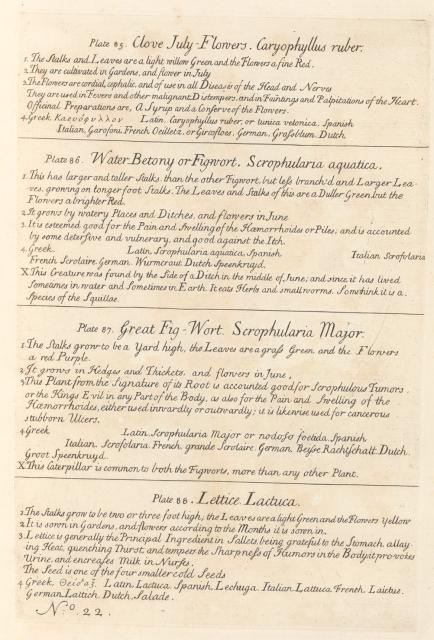 Plate 85. Clove July-Flowers. Caryophyllus ruber.
1. The Stalks and Leaves are a light willow Green and the Flowers a fine Red.
2. They are cultivated in Gardens, and flower in July
3. The Flowers are cordial, cephalic, and of use in all Diseases of the Head and Nerves
They are used in Fevers and other malignant Distempers, and in Faintings and Palpitations of the Heart.
Officinal Preparations are, A Syrup and a Conserve of the Flowers.
4. Greek Latin, Caryophyllus ruber, or tunica vetonica, Spanish
Italian, Garofoni, French Oeilletz, or Girofloes, German, Graſsblum, Dutch
Plate 86. Water-Betony or Figwort. Scrophularia aquatica.
1. This has larger and taller Stalks, than the other Figwort, but leſs branch'd and Larger Lea-
ves, growing on longer foot Stalks. The Leaves and Stalks of this are a Duller Green, but the
Flowers a brighter Red.
2. It grows by watery Places and Ditches, and flowers in June
3. It is esteemed good for the Pain and Swelling of the Hæmorrhoides or Piles, and is accounted
by some detersive and vulnerary, and good against the Itch.
4. Greek, Latin, Scrophularia aquatica, Spanish, Italian Scrofolaria
French Scrolaire German. Wurmcraut Dutch Speenkruyd.
X This Creature was found by the Side of a Ditch in the middle of June, and since it has lived
Sometimes in water and Sometimes in Earth. It eats Herbs and small worms. Some think it is a
Species of the Squillæ.
Plate 87. Great Fig-Wort. Scrophularia Major.
1. The Stalks grow to be a Yard high, the Leaves are a graſs Green and the Flowers
a red Purple.
2. It grows in Hedges and Thickets, and flowers in June,
3. This Plant from the Signature of its Root is accounted good for Scrophulous Tumors
or the Kings Evil in any Part of the Body, as also for the Pain and Swelling of the
Hæmorrhoides, either used inwardly or outwardly; it is likewise used for cancerous
stubborn Ulcers.
4. Greek Latin, Scrophularia Major or nodoso foetida, Spanish
Italian, Scrofolaria, French, grande Scrolaire, German, Dutch
Groot Speenkruyd.
X This Caterpillar is common to both the Figworts, more than any other Plant.
Plate 88. Lettice. Lactuca.
1. The Stalks grow to be two or three foot high, the Leaves are a light Green and the Flowers Yellow
2. It is sown in Gardens, and flowers according to the Months it is sown in.
3. Lettice is generally the Principal Ingredient in Sallets, being grateful to the Stomach, allay-
ing Heat, quenching Thirst, and tempers the Sharpneſs of Humors in the Body; it provokes
Urine, and encreases Milk in Nurses.
The Seed is one of the four smaller cold Seeds
4. Greek, Latin, Lactuca, Spanish, Lechuga, Italian, Lattuca, French, Laictue,
German, Lattich, Dutch, Salade.
No. 22.